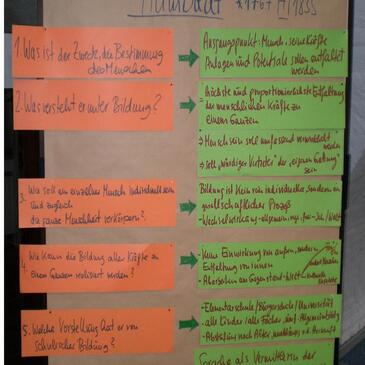 Humboldt *1767 †1835
1. Was ist der Zweck, die Bestimmung
des Menschen
Ausgangspunkt: Mensch, seine Kräfte
Anlagen und Potentiale sollen entfaltet
werden
2. Was versteht er unter Bildung?
höchste und proportionierlichste Entfaltung
der menschlichen Kräfte zu
einem Ganzen
→ Mensch sein soll umfassend verwirklicht
werden
→ soll "würdiger Vertreter" der "eigenen Gattung"
sein
3. Wie soll ein einzelner Mensch individuell sein
und zugleich
die ganze Menschheit verkörpern?
Bildung ist kein rein individueller, sondern ein
gesellschaftlicher Prozess
- Wechselwirkung Ich/Welt
4. Wie kann die Bildung aller Kräfte zu
einem Ganzen realisiert werden?
- Keine Einwirkung von außen, sondern
Entfaltung von innen
- Gegenstand Welt
5. Welche Vorstellung hat er von
schulischer Bildung?
- Elementarschule/Bürgerschule/Universität
- alle Kinder/alle Fächer
- nach Alter, unabhängig v. d. Herkunft
Sprache als Vermittlerin der